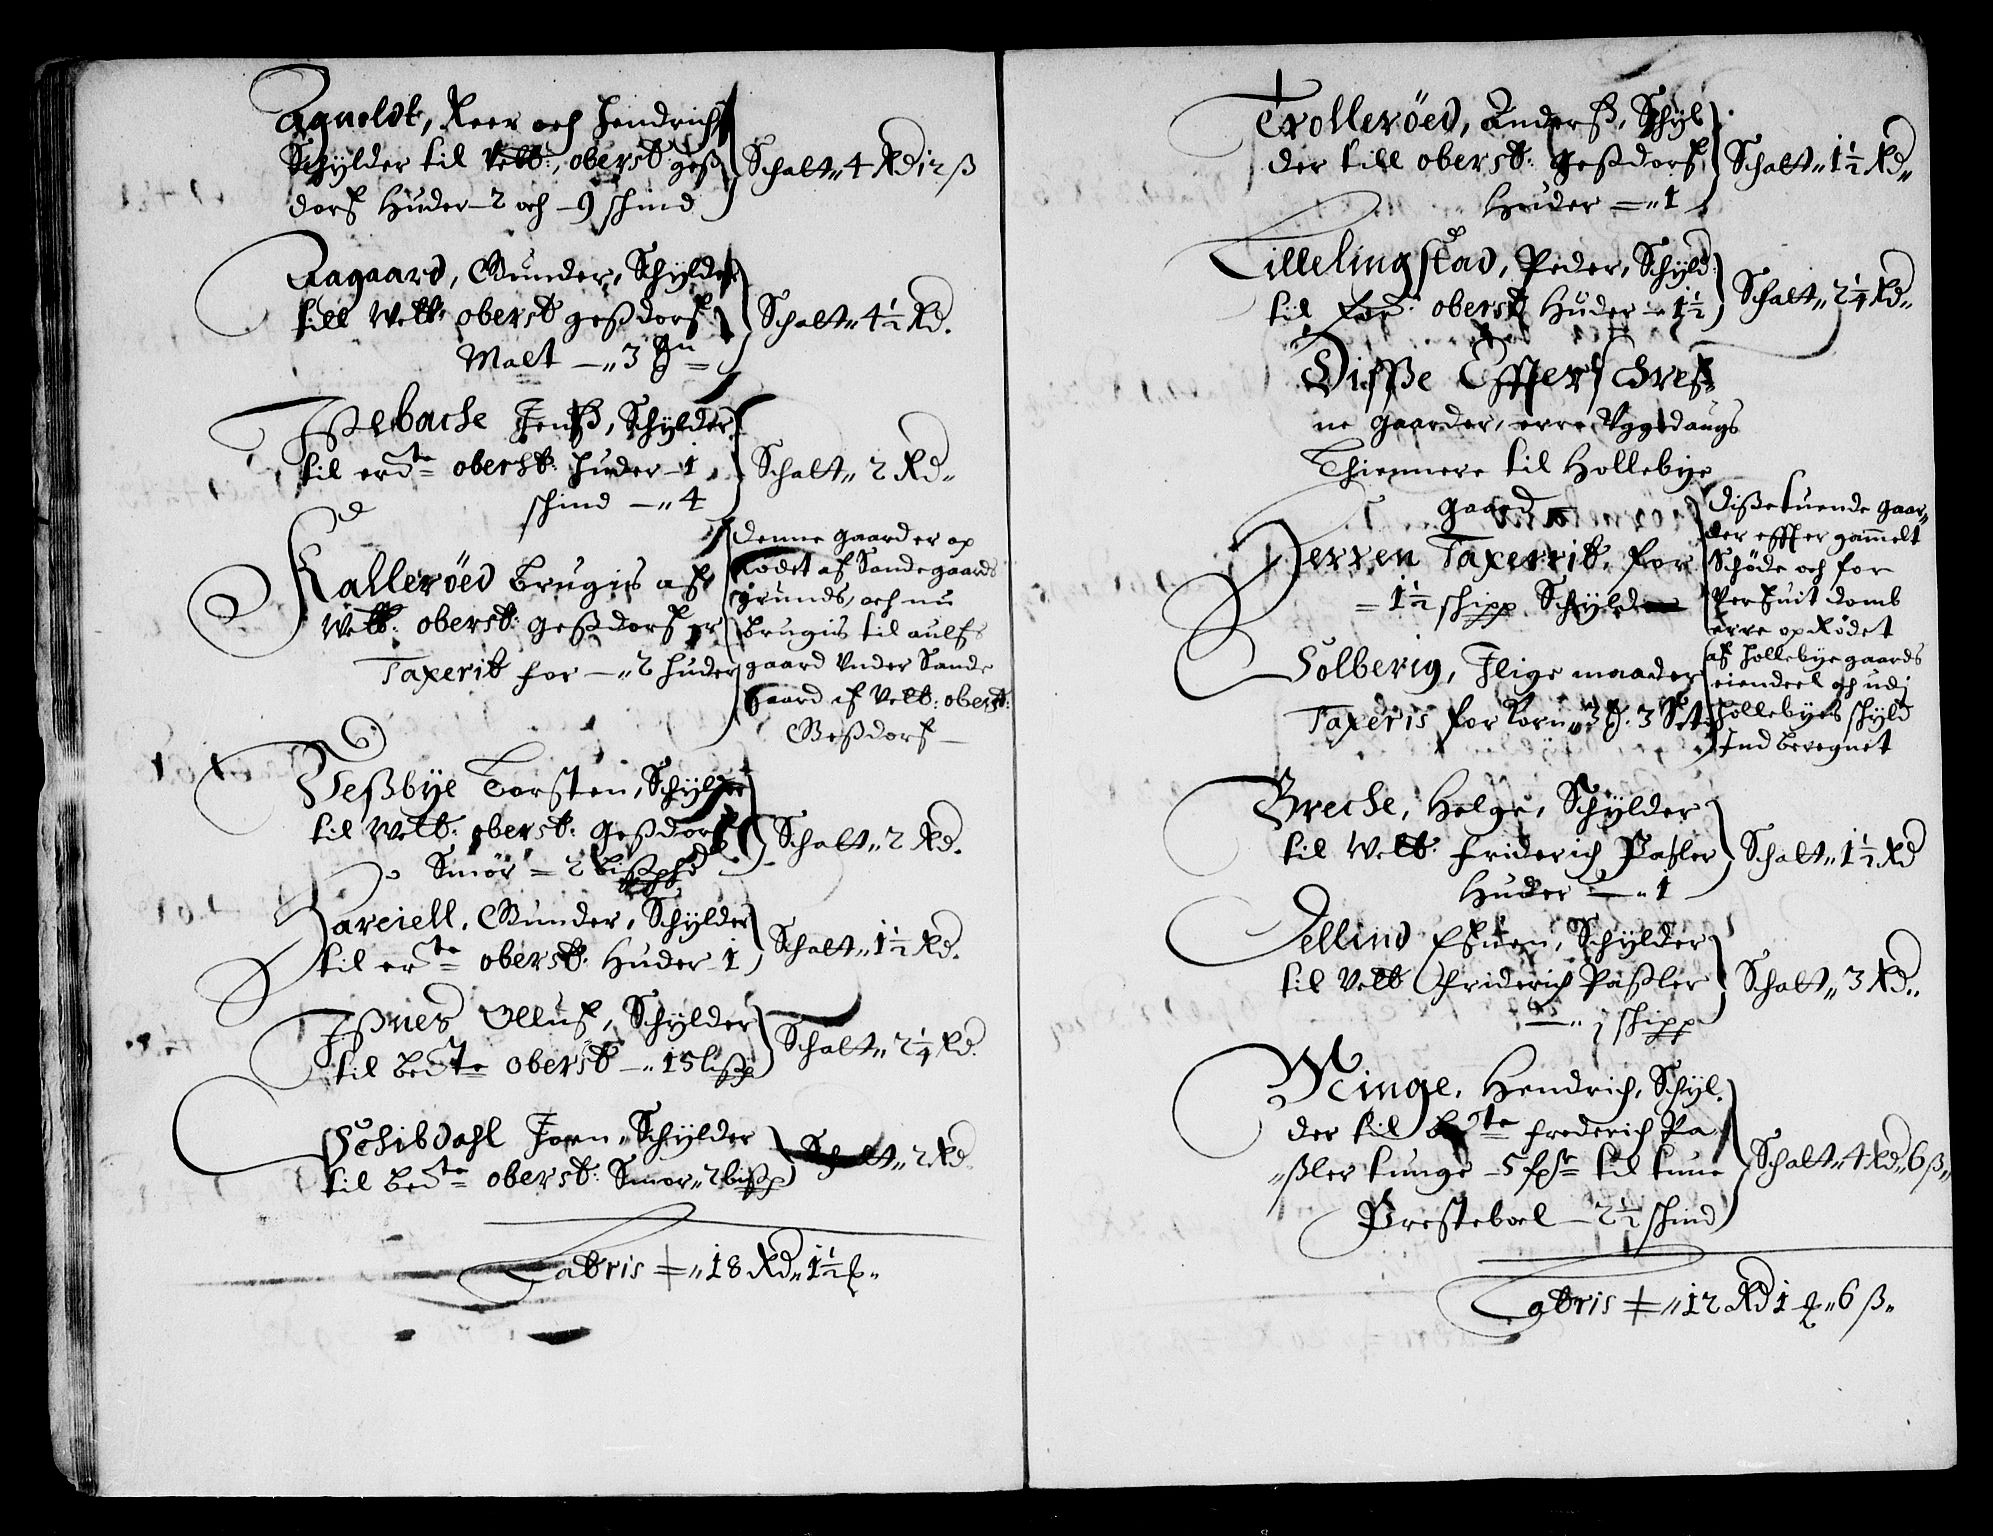 Agneldt, Reer och Hendrich
Schylder til Velb: oberst: geß
dorf Huder 2 och 9 schind
Schatt„ 4 Rd 12 ß
Aagaard, Gunder, Schylder
till Welb: oberst geßdorf
Malt —„ 3
Schatt„ 4½ Rd.
Ißebache Jenß, Schylder
til erdte oberst: huder 1
schind —„ 4
Schatt„ 2 Rd„
Kalleröed brugis af
Welb: oberst: geßdorf er
Taxerit for —„ 2 huder
denne gaard er op
Rödet af Sandegaards
grunds, och nu
brugis til aulfs
gaard Vnder Sande
gaard af Velb: oberst:
Geßdorf —
Weßbye Torsten, Schylder
til Welb: oberst: Geßdorf
Smör = 2 bißphd
Schatt„ 2 Rd.
Hareiell, Gunder, Schylder
til erte oberst: Huder 1
Schatt„ 1½ Rd.
Ißnes Olluf, Schylder
til bedte oberst —„ 15 lißp
Schatt„ 2¼ Rd.
Schibdahl Jorn„ Schylder
til bedte oberst: Smör„ 2 bißp
Schatt„ 2 Rd.
Latris =„ 18 Rd„ 1½
Trolleröed, Anderß, Schyl
der till oberst: Geßdorf
Huder =„ 1
Schatt„ 1½ Rd„
Tillelingstad, Peder, Schyld:
til oberst Huder —„ 1½
Schatt„ 2¼ Rd„
Disße Effterschref„
ne gaarder, erre Vggedaugs
Thiennere til Hollebye
gaard —
Herren Taxerrit, for
= 1½ schipp Schylder
Solberig, I lige maader
Taxeris for Korn„ 3 3
Dißetuende gaar„
der effter gammelt
Schöde och for
Perfuit domb
erre opRödet
af Hollebye gaards
eiendeel och udj
Hollebyes schyld
Ind beregnet
Breche, Helge, Schylder
til Welb: friderich Paßler
Huder —„ 1
Schatt„ 1½ Rd
Jellind Efuen, Schylder
til Velb friderich Paßler
—„ 1 schipp
Schatt„ 3 Rd„
Minge, Hendrich, Schyl„
der til bte frederich Pa
„ßler tunge 5 til tune
Presteboel — 2½ schind
Schatt„ 4 Rd„ 6 ß„
Latris =„ 12 Rd 1 „ 6 ß„